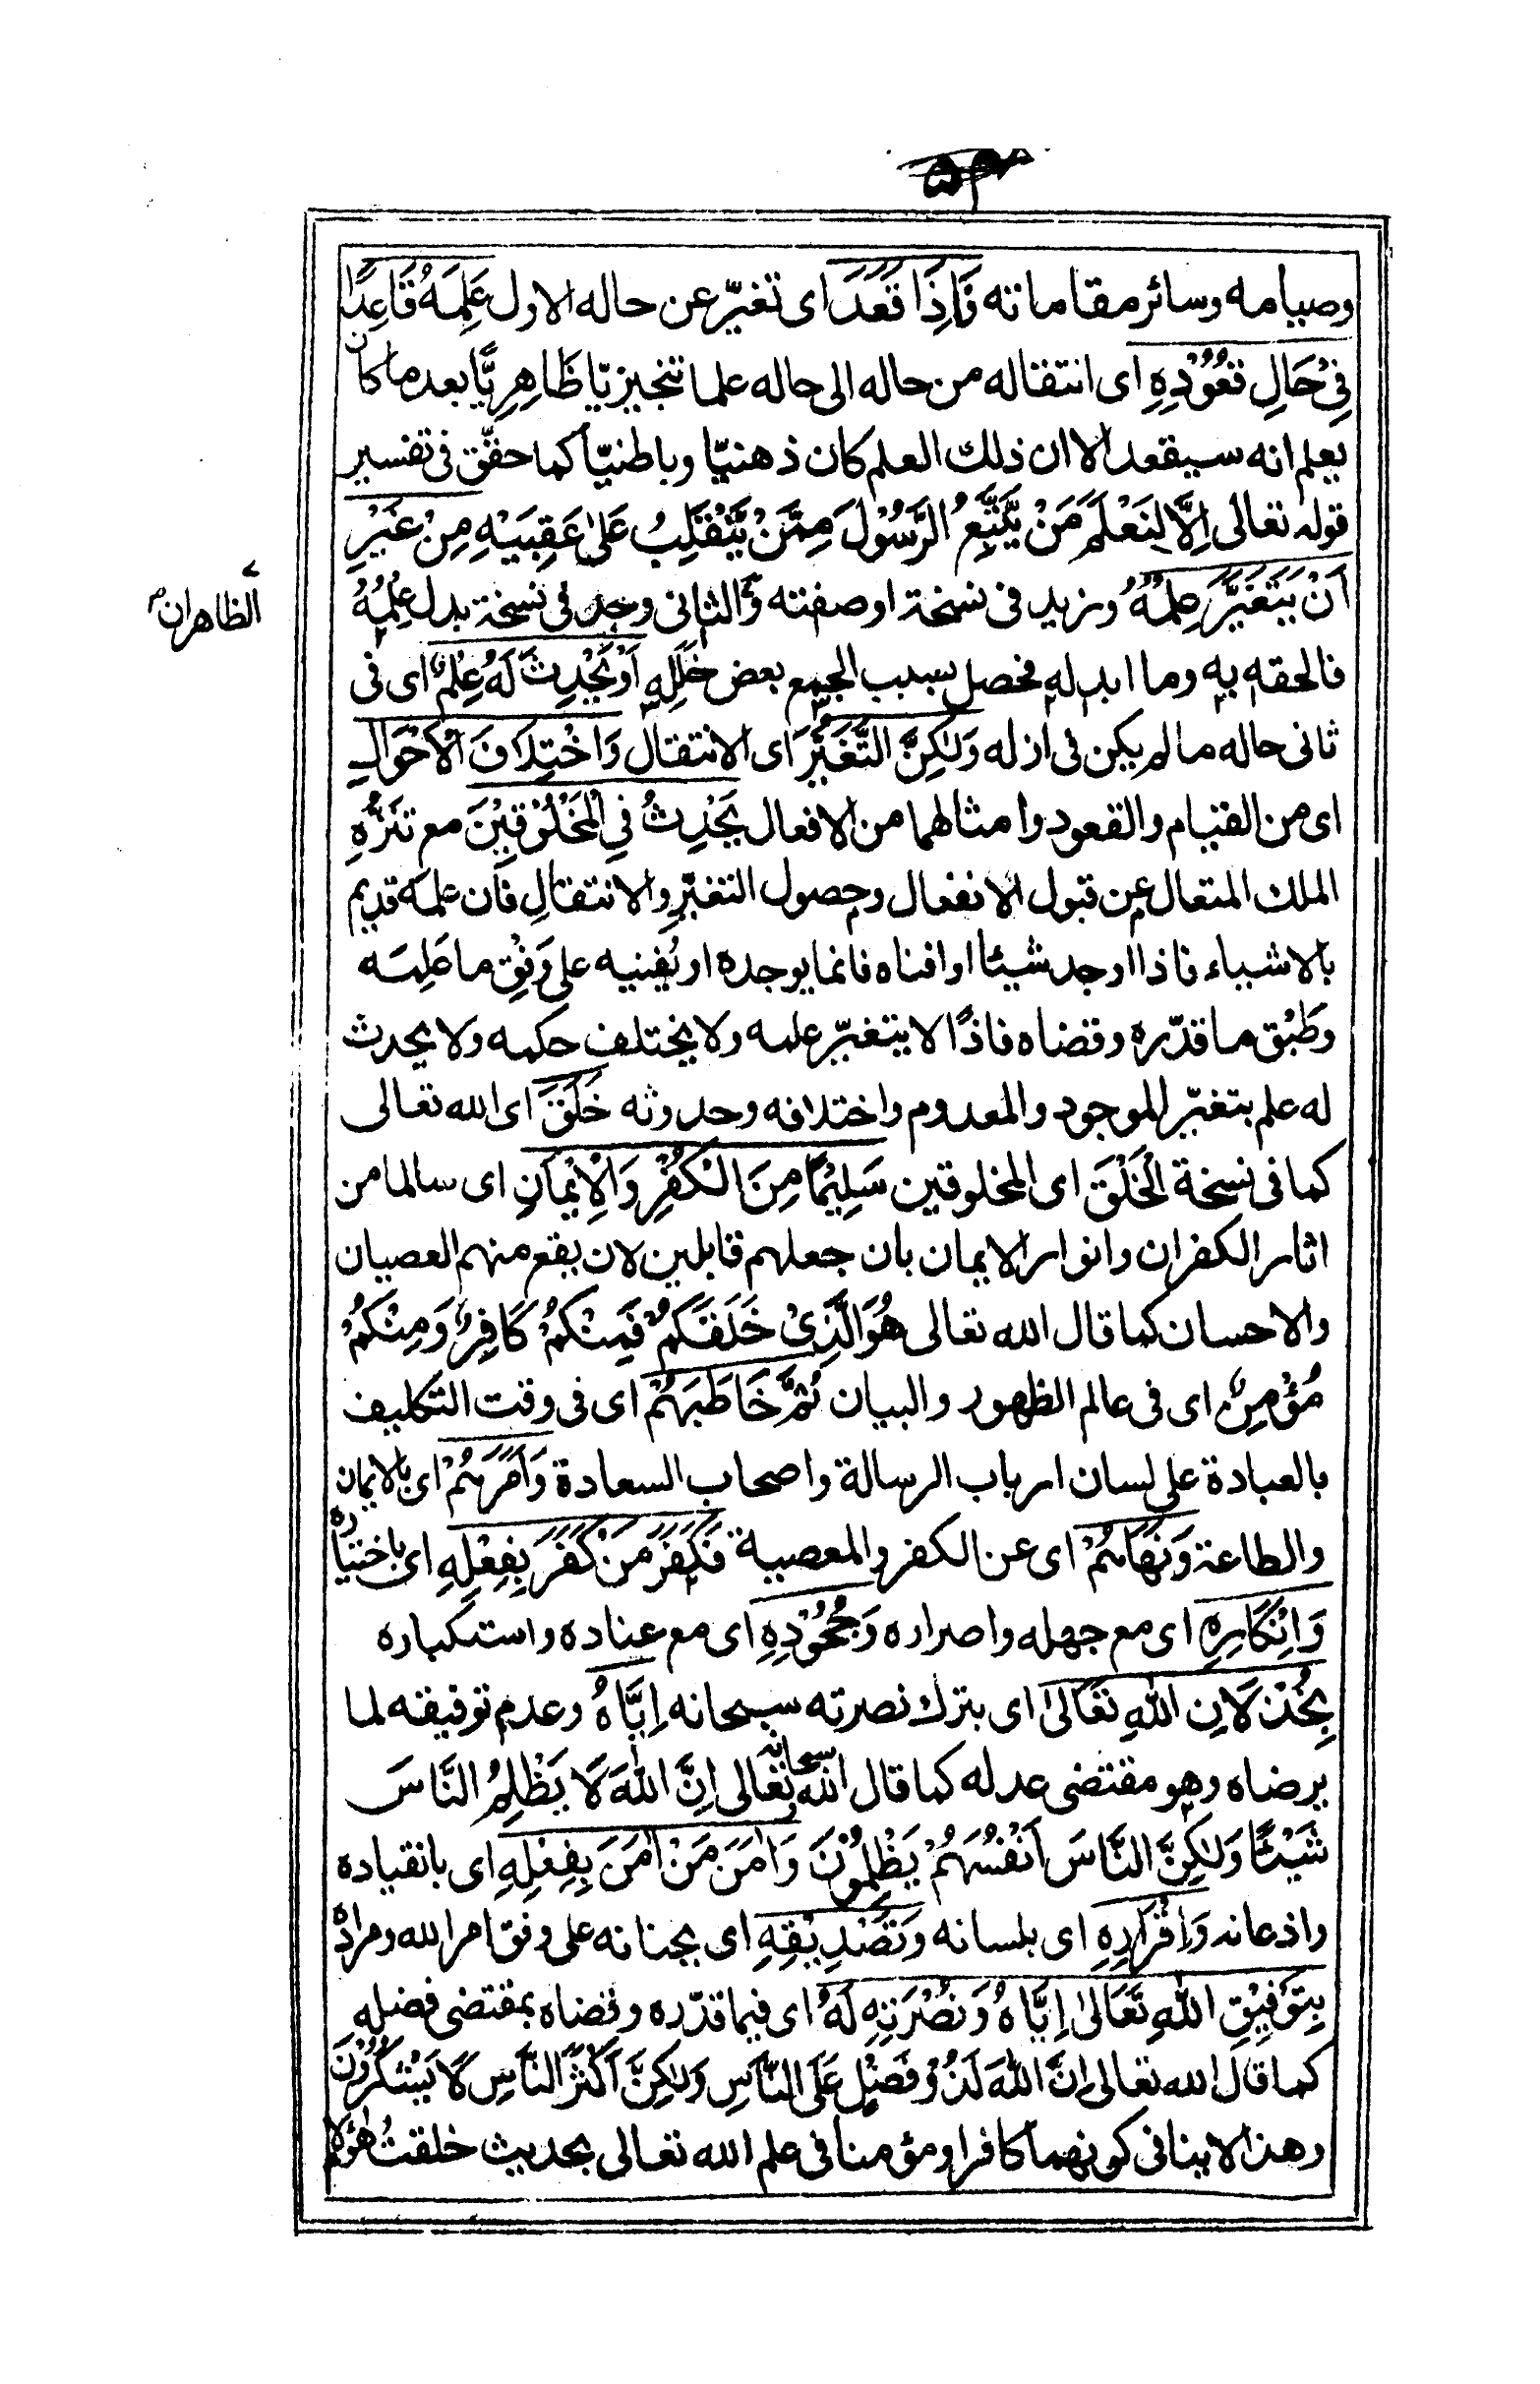 وصيامه وسائر مقاماته وَاِذَا قَعَدَ اى تغيّر عن حاله الاول عَلِمَهُ قَاعِدًا
فِىْ حَالِ قعُوُدِهِ اى انتقاله من حاله الى حاله علما تنجيزيّا ظَاهِرِيًّا بعد ما كان
يعلم انه سيقعد الا ان ذلك العلم كان ذهنيّا وباطنيّا كما حقّق فى تفسير
قوله تعالى اِلَّا لِنَعْلَمَ مَنْ يَّتَّبِعُ الرَّسُوْلَ مِمَّنْ يَّنْقَلِبُ عَلٰى عَقِبَيْهِ مِنْ غَيْرِ
اَنْ يَتَغَيَّرَ عِلْمُهُ وزيد فى نسخة او صفته والثانى وجد فى نسخة بدل عِلْمُهُ
فالحقه به وما ابدله فحصل بسبب الجمع بعض خَلَلِهِ اَوْ يَحْدِثَ لَهُ عِلْمٌ اى فى
ثانى حاله ما لم يكن فى ازله وَلٰكِنَّ التَّغَيُّرَ اى الانتقال وَاخْتِلَافَ الْاَحْوَالِ
اى من القيام والقعود وامثالهما من الافعال يَحْدِثُ فِى الْمَخْلُوْقِيْنَ مع تنَزُّهِ
الملك المتعال عن قبول الانفعال وحصول التغيّرِ والانتقالِ فان علمَه قديم
بالاشياء فاذا اوجد شيئا او افناه فانما يوجده او يُفنيه على وَفْقِ ما عَلِمَه
وطَبْق ما قدّره وقضاه فاذًا لا يتغيّر علمه ولا يختلف حكمه ولا يحدث
له علم بتغيّر الموجود والمعدوم واختلافه وحدوثه خَلَقَ اى الله تعالى
كما فى نسخة الْخَلْقَ اى المخلوقين سَلِيْمًا مِنَ الْكُفْرِ وَالْاِيْمَانِ اى سالما من
اثار الكفران وانوار الايمان بان جعلهم قابلين لان يقع منهم العصيان
والاحسان كما قال الله تعالى هُوَ الَّذِىْ خَلَقَكُمْ فَمِنْكُمْ كَافِرٌ وَمِنْكُمْ
مُؤْمِنٌ اى فى عالم الظهور والبيان ثُمَّ خَاطَبَهُمْ اى فى وقت التكليف
بالعبادة على لسان ارباب الرسالة واصحاب السعادة وَاَمَرَهُمْ اى بالايمان
والطاعة وَنَهَاهُمْ اى عن الكفر والمعصية فَكَفَرَ مَنْ كَفَرَ بِفِعْلِهِ اى باختياره
وَاِنْكَارِهِ اى مع جهله واصراره وَجُحُوْدِهِ اى مع عناده واستكباره
بِخُذْلَانِ اللّٰهِ تَعَالٰى اى بترك نصرته سبحانه اِيَّاهُ وعدم توفيقه لما
يرضاه وهو مقتضى عدله كما قال الله سبحانه تعالى اِنَّ اللّٰهَ لَا يَظْلِمُ النَّاسَ
شَيْئًا وَلٰكِنَّ النَّاسَ اَنْفُسَهُمْ يَظْلِمُوْنَ وَاٰمَنَ مَنْ اٰمَنَ بِفِعْلِهِ اى بانقياده
واذعانه وَاِقْرَارِهِ اى بلسانه وَتَصْدِيْقِهِ اى بجنانه على وفق امر الله ومراده
بِتَوْفِيْقِ اللّٰهِ تَعَالٰى اِيَّاهُ وَنَصْرَتِهِ لَهُ اى فيما قدّره وقضاه بمقتضى فضله
كما قال الله تعالى اِنَّ اللّٰهَ لَذُوْ فَضْلٍ عَلَى النَّاسِ وَلٰكِنَّ اَكْثَرَ النَّاسِ لَا يَشْكُرُوْنَ
وهذا لا ينافى كونهما كافرا ومؤمنا فى علم الله تعالى بحديث خلقتُ هٰؤلاء
الظاهران